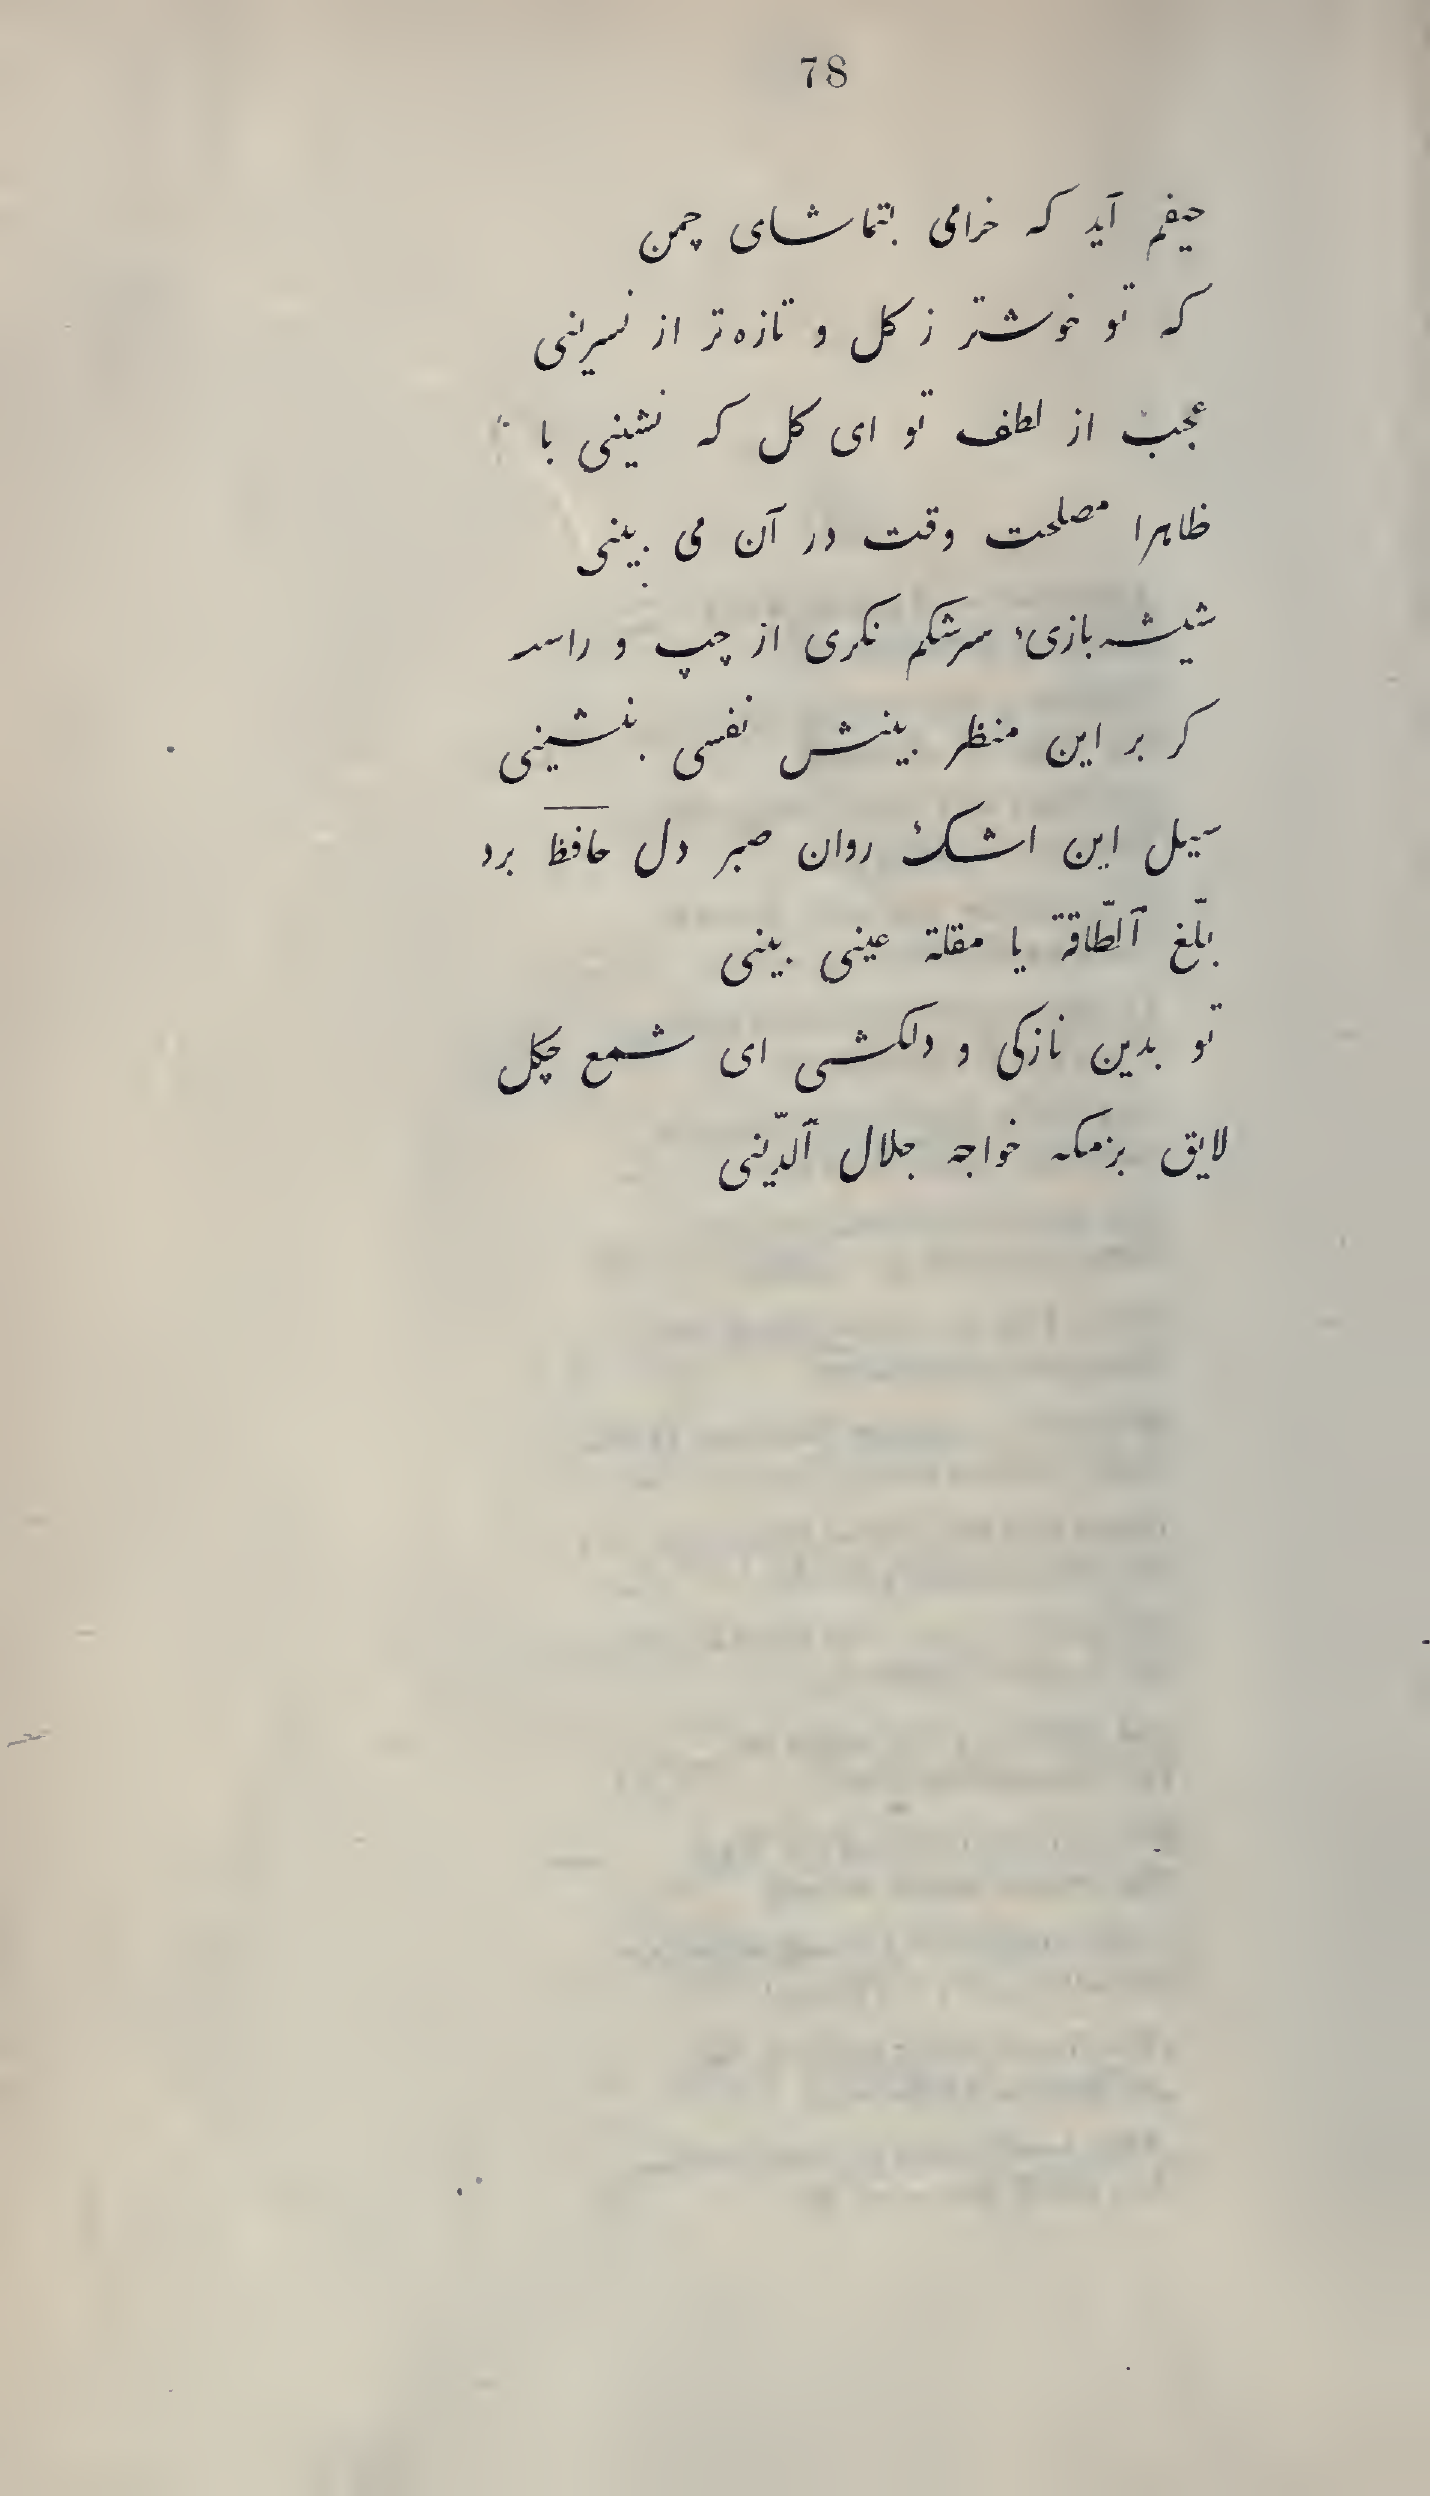 78
حیفم آید که خرامی بتماشای چمن
که تو خوشتر ز کل و تازه‌تر از نسرینی
عجب از لطف تو ای کل که نشینی با
ظاهرا مصلحت وقت در آن می بینی
شیشه‌بازیء سرشکم نکری از چپ و راسـ
کر بر این منظر بینش نفسی بنشینی
سیل این اشکء روان صبر دل حافظ برد
بلّغ ٱلطّاقة یا مقلة عینی بینی
تو بدین نازکی و دلکشی ای شمع چکل
لایق بزمکه خواجه جلال ٱلدّینی